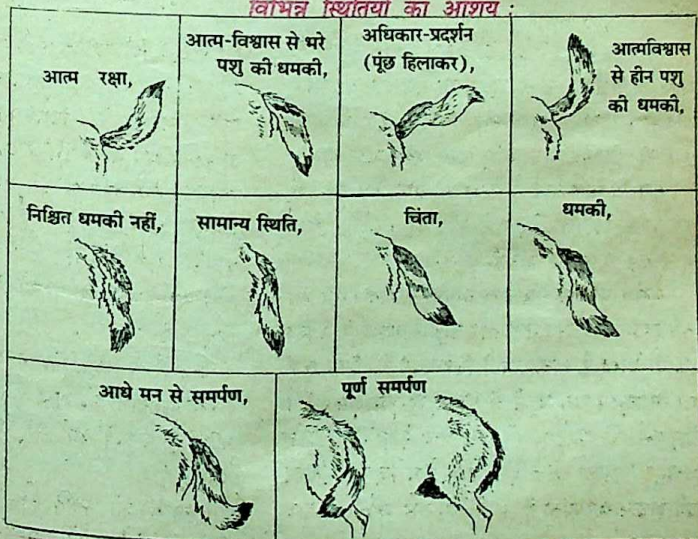 विभिन्न स्थितियों का आशय :
आत्म रक्षा,
आत्म-विश्वास से भरे
पशु की धमकी,
अधिकार-प्रदर्शन
(पूंछ हिलाकर),
आत्मविश्वास
से हीन पशु
की धमकी,
निश्चित धमकी नहीं,
सामान्य स्थिति,
चिंता,
धमकी,
आधे मन से समर्पण,
पूर्ण समर्पण